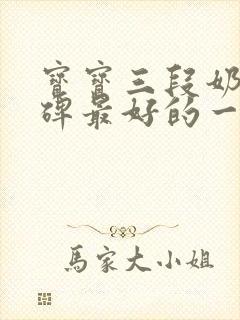 寶寶三段奶
碑最好的一
馬家大小姐